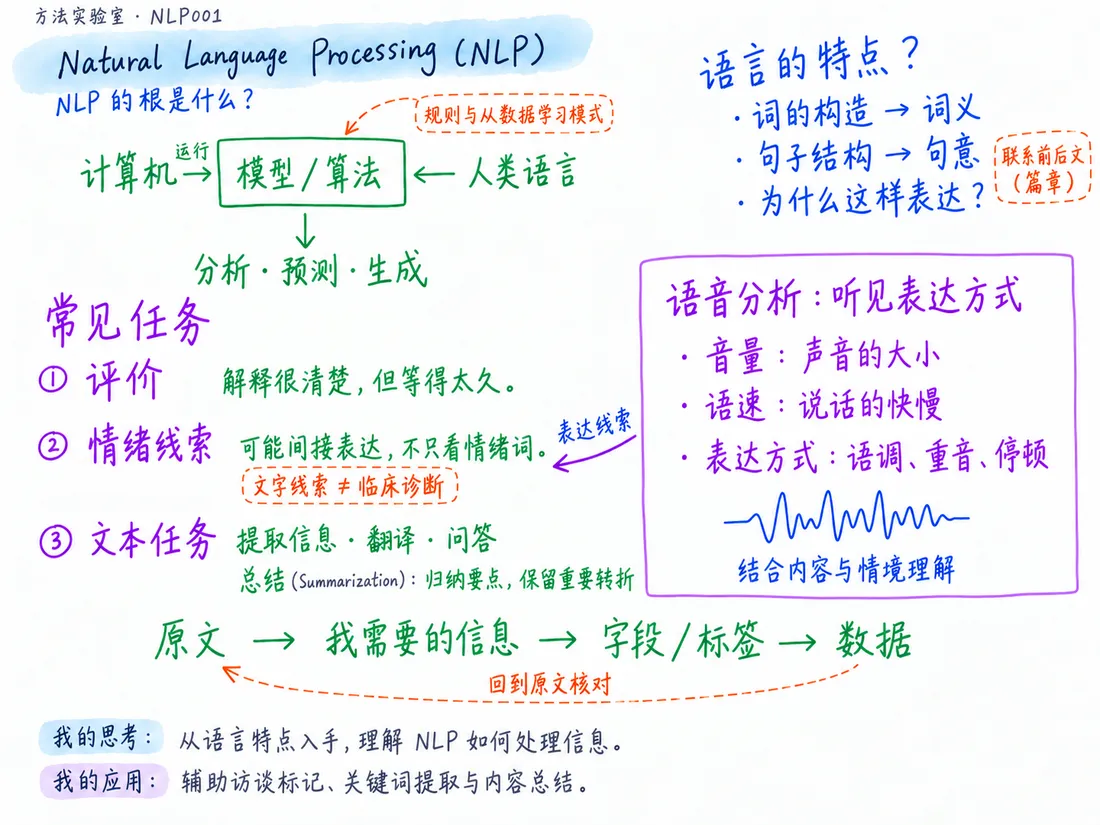 方法实验室 · NLP001
Natural Language Processing (NLP)
NLP 的根是什么？
规则与从数据学习模式
计算机 运行 → 模型 / 算法 ← 人类语言
↓
分析 · 预测 · 生成
语言的特点？
· 词的构造 → 词义
· 句子结构 → 句意
· 为什么这样表达？
联系前后文
（篇章）
常见任务
① 评价 解释很清楚，但等得太久。
② 情绪线索 可能间接表达，不只看情绪词。
文字线索 ≠ 临床诊断
③ 文本任务 提取信息 · 翻译 · 问答
总结 (Summarization)：归纳要点，保留重要转折
表达线索
语音分析：听见表达方式
· 音量：声音的大小
· 语速：说话的快慢
· 表达方式：语调、重音、停顿
结合内容与情境理解
原文 → 我需要的信息 → 字段 / 标签 → 数据
回到原文核对
我的思考： 从语言特点入手，理解 NLP 如何处理信息。
我的应用： 辅助访谈标记、关键词提取与内容总结。